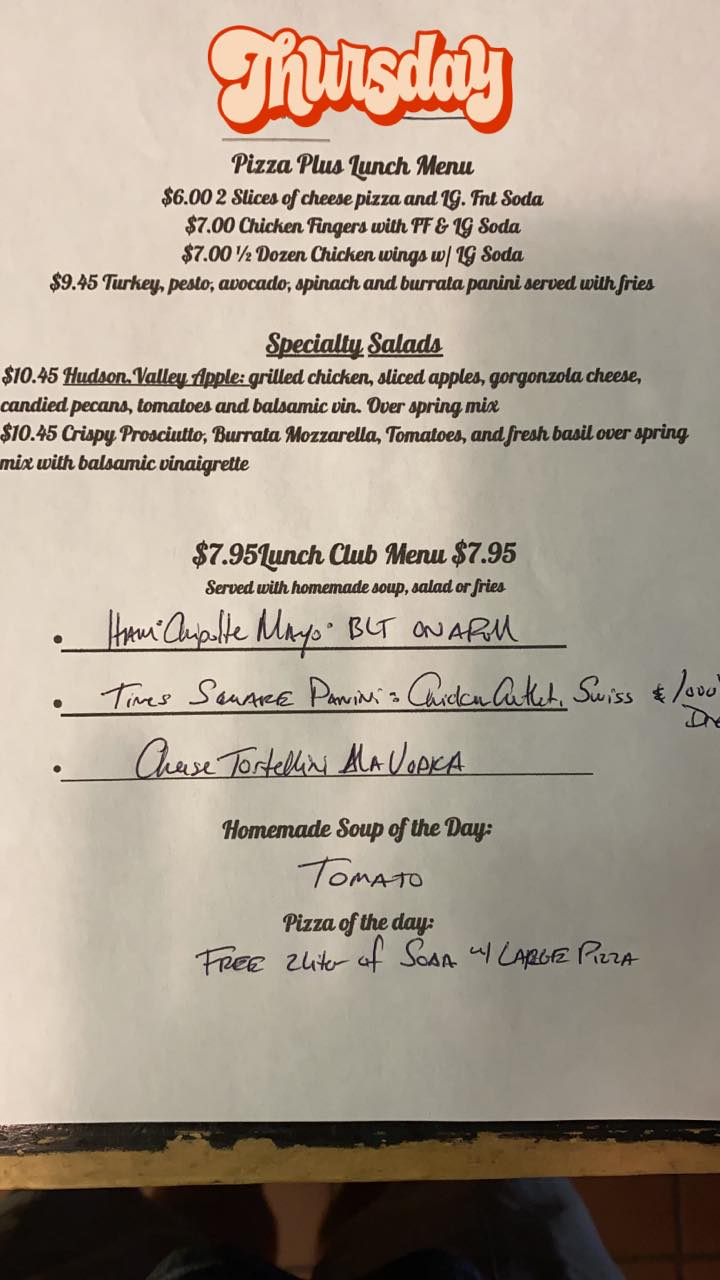 Thursday
Pizza Plus Lunch Menu
$6.00 2 Slices of cheese pizza and LG. Fnt Soda
$7.00 Chicken Fingers with FF & LG Soda
$7.00 ½ Dozen Chicken wings w/ LG Soda
$9.45 Turkey, pesto, avocado, spinach and burrata panini served with fries
Specialty Salads
$10.45 Hudson Valley Apple: grilled chicken, sliced apples, gorgonzola cheese,
candied pecans, tomatoes and balsamic vin. Over spring mix
$10.45 Crispy Prosciutto, Burrata Mozzarella, Tomatoes, and fresh basil over spring
mix with balsamic vinaigrette
$7.95Lunch Club Menu $7.95
Served with homemade soup, salad or fries
• HAM "Chipolte Mayo" BLT ON A Roll
• Times SQUARE PANINI: Chicken Cutlet, Swiss & 1000
• Cheese Tortellini ALA VODKA
Homemade Soup of the Day:
TOMATO
Pizza of the day:
FREE 2 liter of SODA w/ LARGE PIZZA